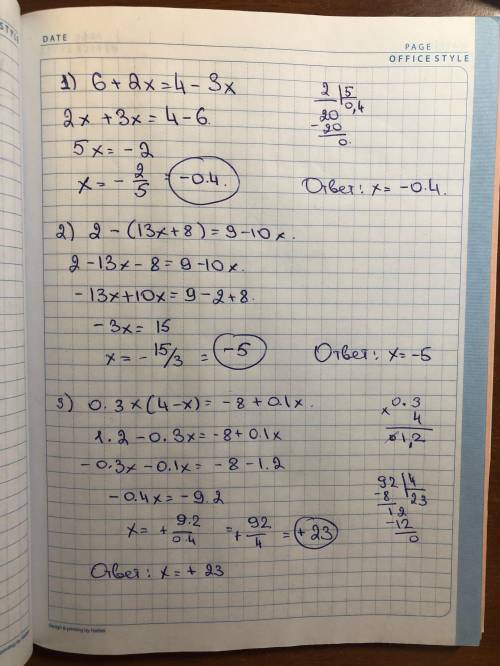 STYLE
DATE
PAGE
OFFICE STYLE
1) 6 + 2x = 4 - 3x
2x + 3x = 4 - 6.
5x = - 2
x = - 2/5 = -0.4.
2 | 5
20 0,4
- 20
0.
Ответ: x = -0.4.
2) 2 - (13x + 8) = 9 - 10x.
2 - 13x - 8 = 9 - 10x.
- 13x + 10x = 9 - 2 + 8.
- 3x = 15
x = - 15/3 = -5
Ответ: x = -5
3) 0.3 × (4 - x) = - 8 + 0.1x.
1.2 - 0.3x = -8 + 0.1x
- 0.3x - 0.1x = - 8 - 1.2
- 0.4x = - 9.2
x = + 9.2/0.4 = + 92/4 = + 23
Ответ: x = + 23
0.3
× 4
1,2
92 | 4
- 8 23
12
- 12
0
Design & printing by Hatber